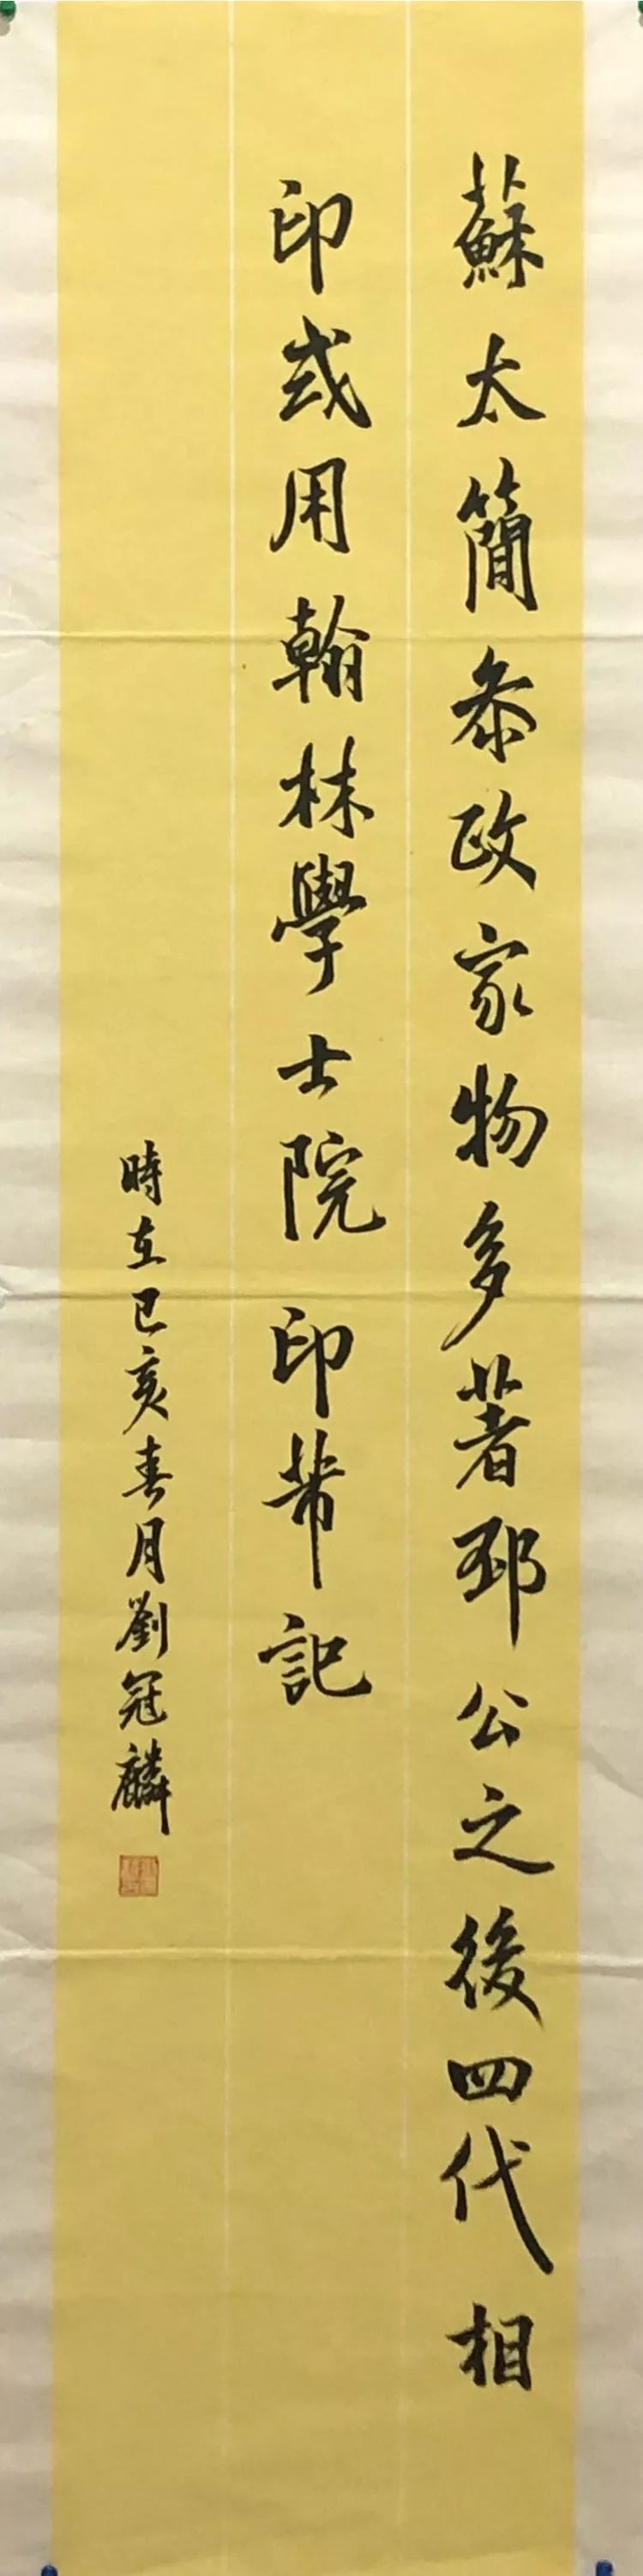 蘇太簡叅政家物多著邳公之後四代相
印或用翰林學士院印芾記
時在己亥春月劉冠麟